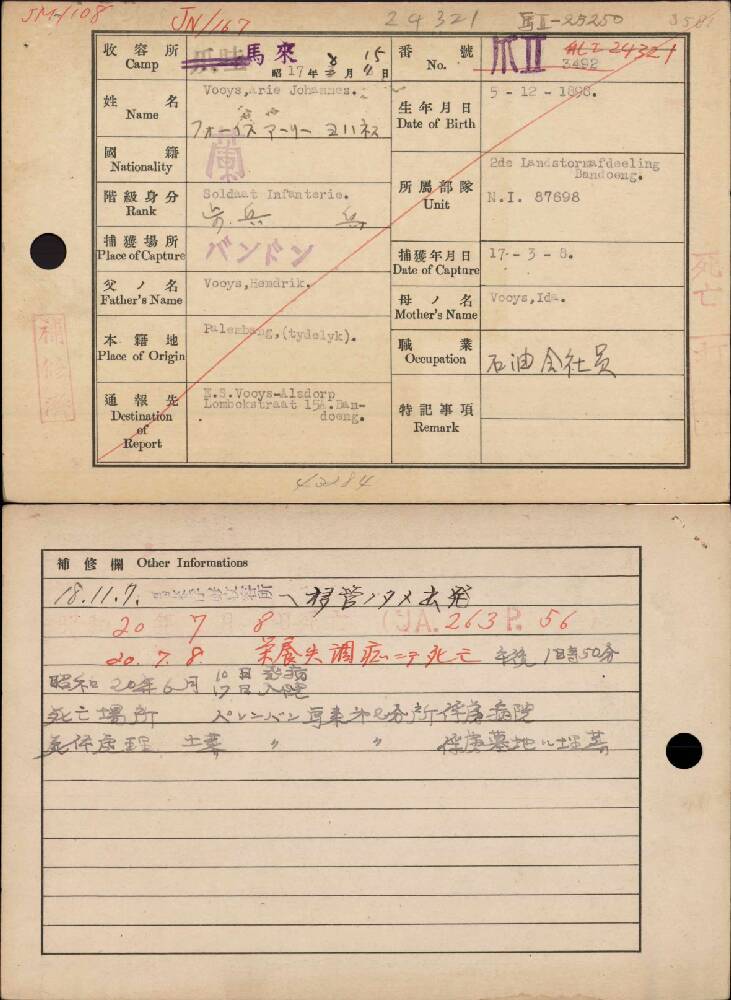 JM/108 JN/167 24321 馬Ⅱ-25250 3581
收容所 Camp 爪哇 馬來 昭17年8月15日
番號 No. 爪Ⅱ ALI 24321 3492
姓名 Name Vooys,Arie Johannes.
フォーイス アーリー ヨハネス
生年月日 Date of Birth 5-12-1898.
國籍 Nationality 蘭
所屬部隊 Unit 2de Landstormafdeeling
Bandoeng.
N.I. 87698
階級身分 Rank Soldaat Infanterie.
歩兵 兵
捕獲場所 Place of Capture バンドン
捕獲年月日 Date of Capture 17-3-8.
父ノ名 Father's Name Vooys,Hendrik.
母ノ名 Mother's Name Vooys,Ida.
本籍地 Place of Origin Palembang,(tydelyk).
職業 Occupation 石油会社員
通報先 Destination of Report E.S.Vooys-Alsdorp
Lombokstraat 15A.Ban-
doeng.
特記事項 Remark
補修濟
死亡
40184
補修欄 Other Informations
18.11.7. 馬來俘虜收容所ヘ移管ノタメ出発
20 7 8 (JA. 263 P. 56
20.7.8. 栄養失調症ニテ死亡 午後1時50分
昭和20年6月 10日発病
17日入院
死亡場所 パレンバン 馬来第 分所俘虜病院
死体處理 土葬 〃 〃 俘虜墓地ニ埋葬